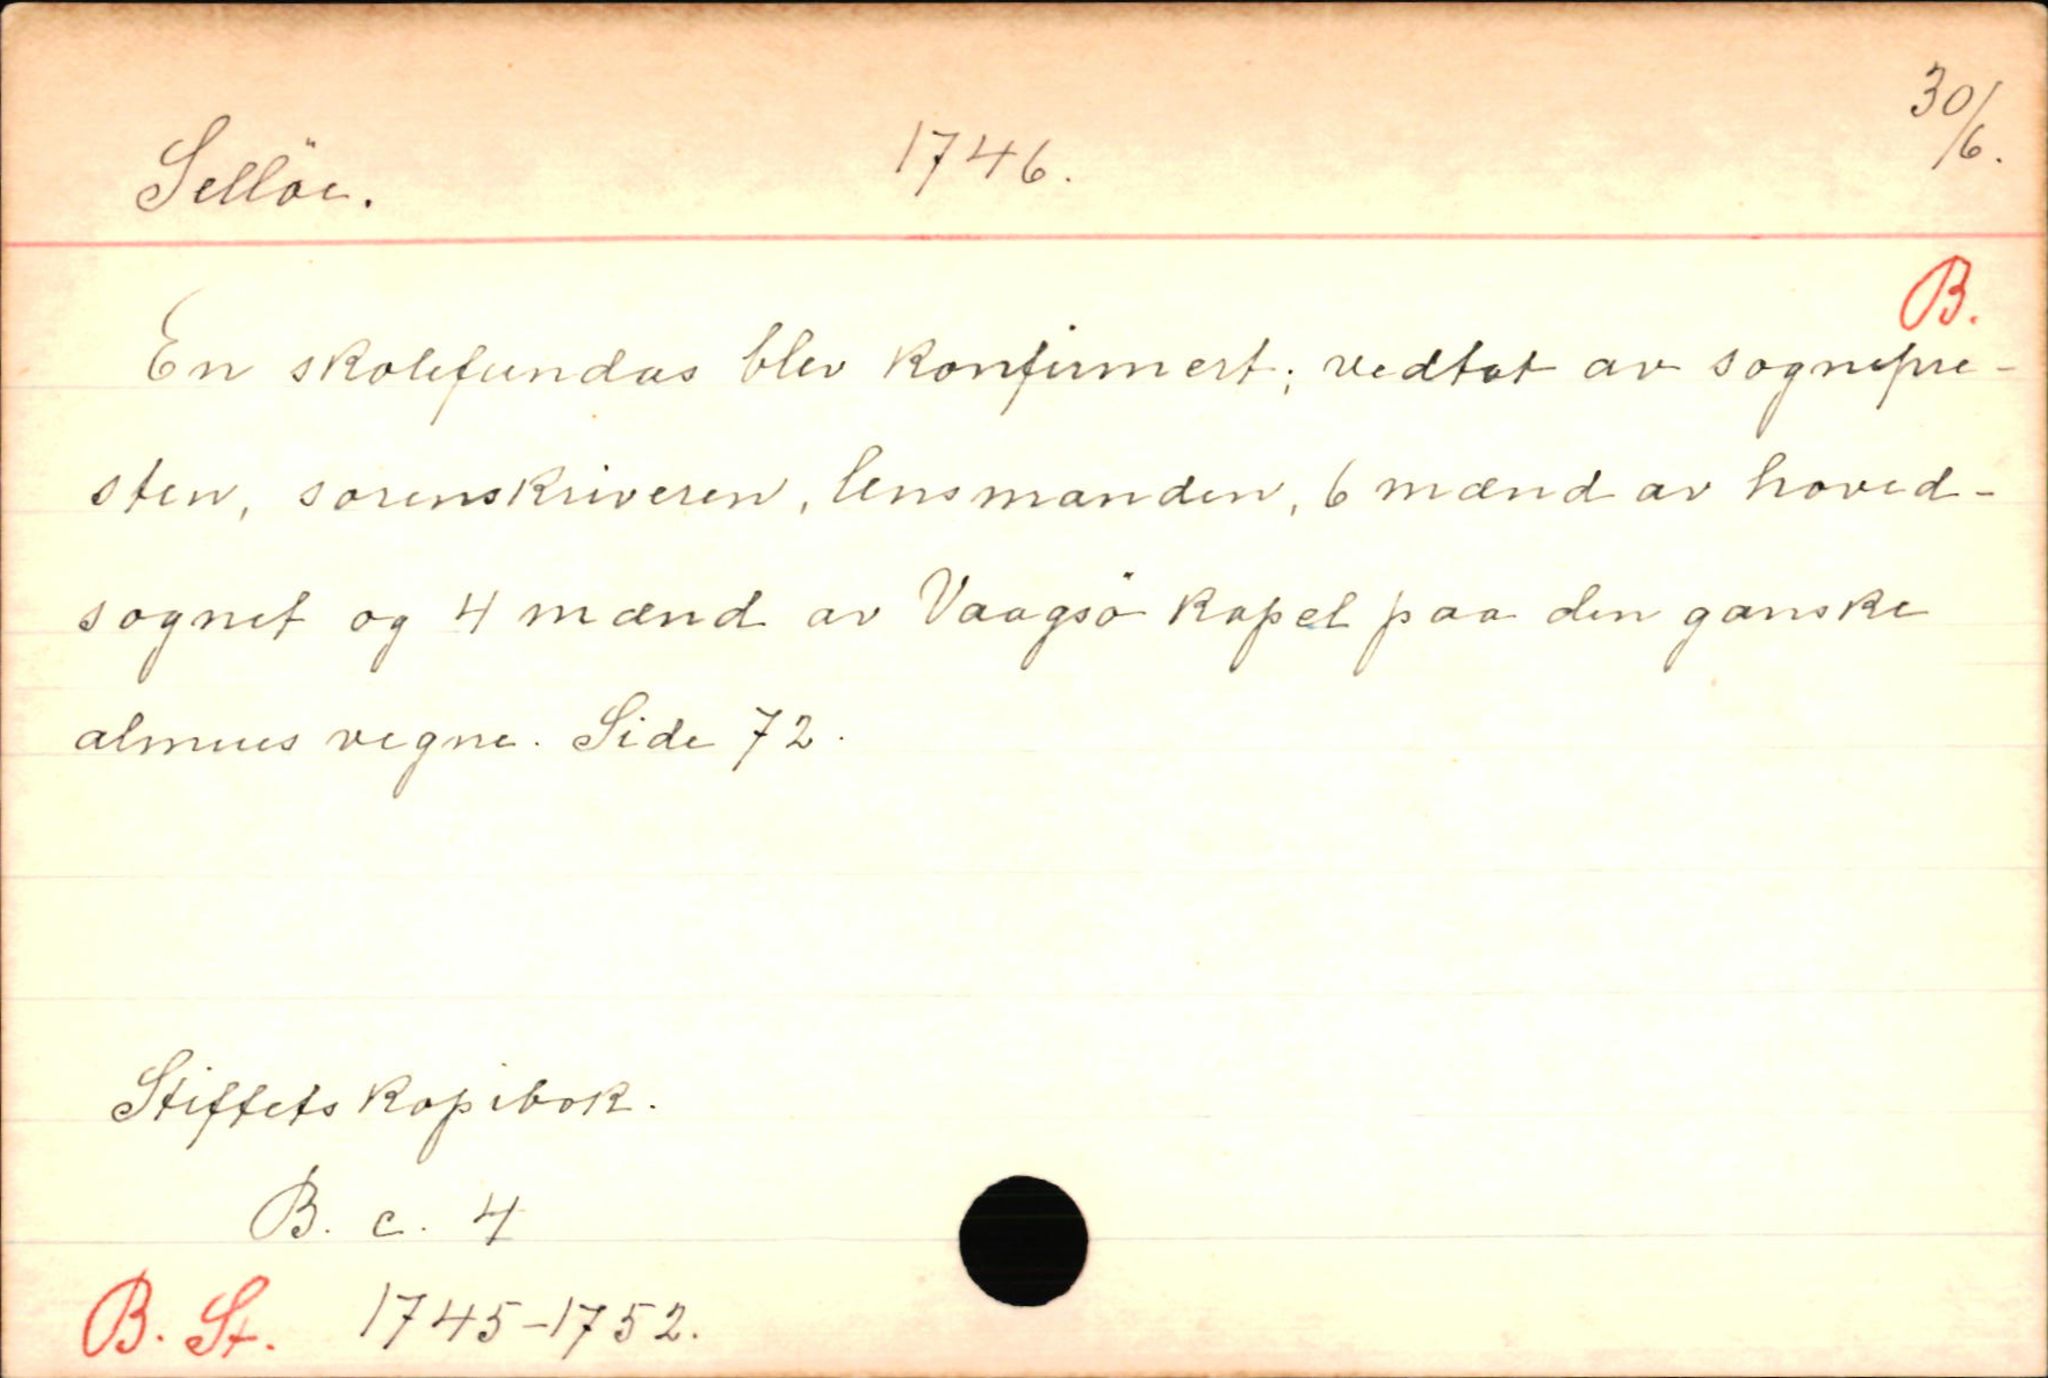 Sellöe. 1746. 30/6.
B.
En skolefundas blev konfirmert; vedtat av sognepre-
sten, sorenskriveren, lensmanden, 6 mænd av hoved-
sognet og 4 mænd av Vaagsö kapel paa den ganske
almues vegne. Side 72.
Stiftets kopibok.
B. c. 4
B. St. 1745-1752.